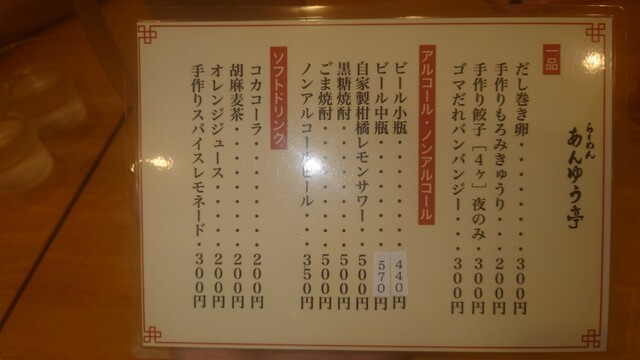 らーめん
あんゆう亭
一品
だし巻き卵・・・・・・・・３００円
手作りもろみきゅうり・・・２００円
手作り餃子［４ヶ］夜のみ・３００円
ゴマだれバンバンジー・・・３００円
アルコール・ノンアルコール
ビール小瓶・・・・・・・・４４０円
ビール中瓶・・・・・・・・５７０円
自家製柑橘レモンサワー・・５００円
黒糖焼酎・・・・・・・・・５００円
ごま焼酎・・・・・・・・・５００円
ノンアルコールビール・・・３５０円
ソフトドリンク
コカコーラ・・・・・・・・２００円
胡麻麦茶・・・・・・・・・２００円
オレンジジュース・・・・・２００円
手作りスパイスレモネード・３００円